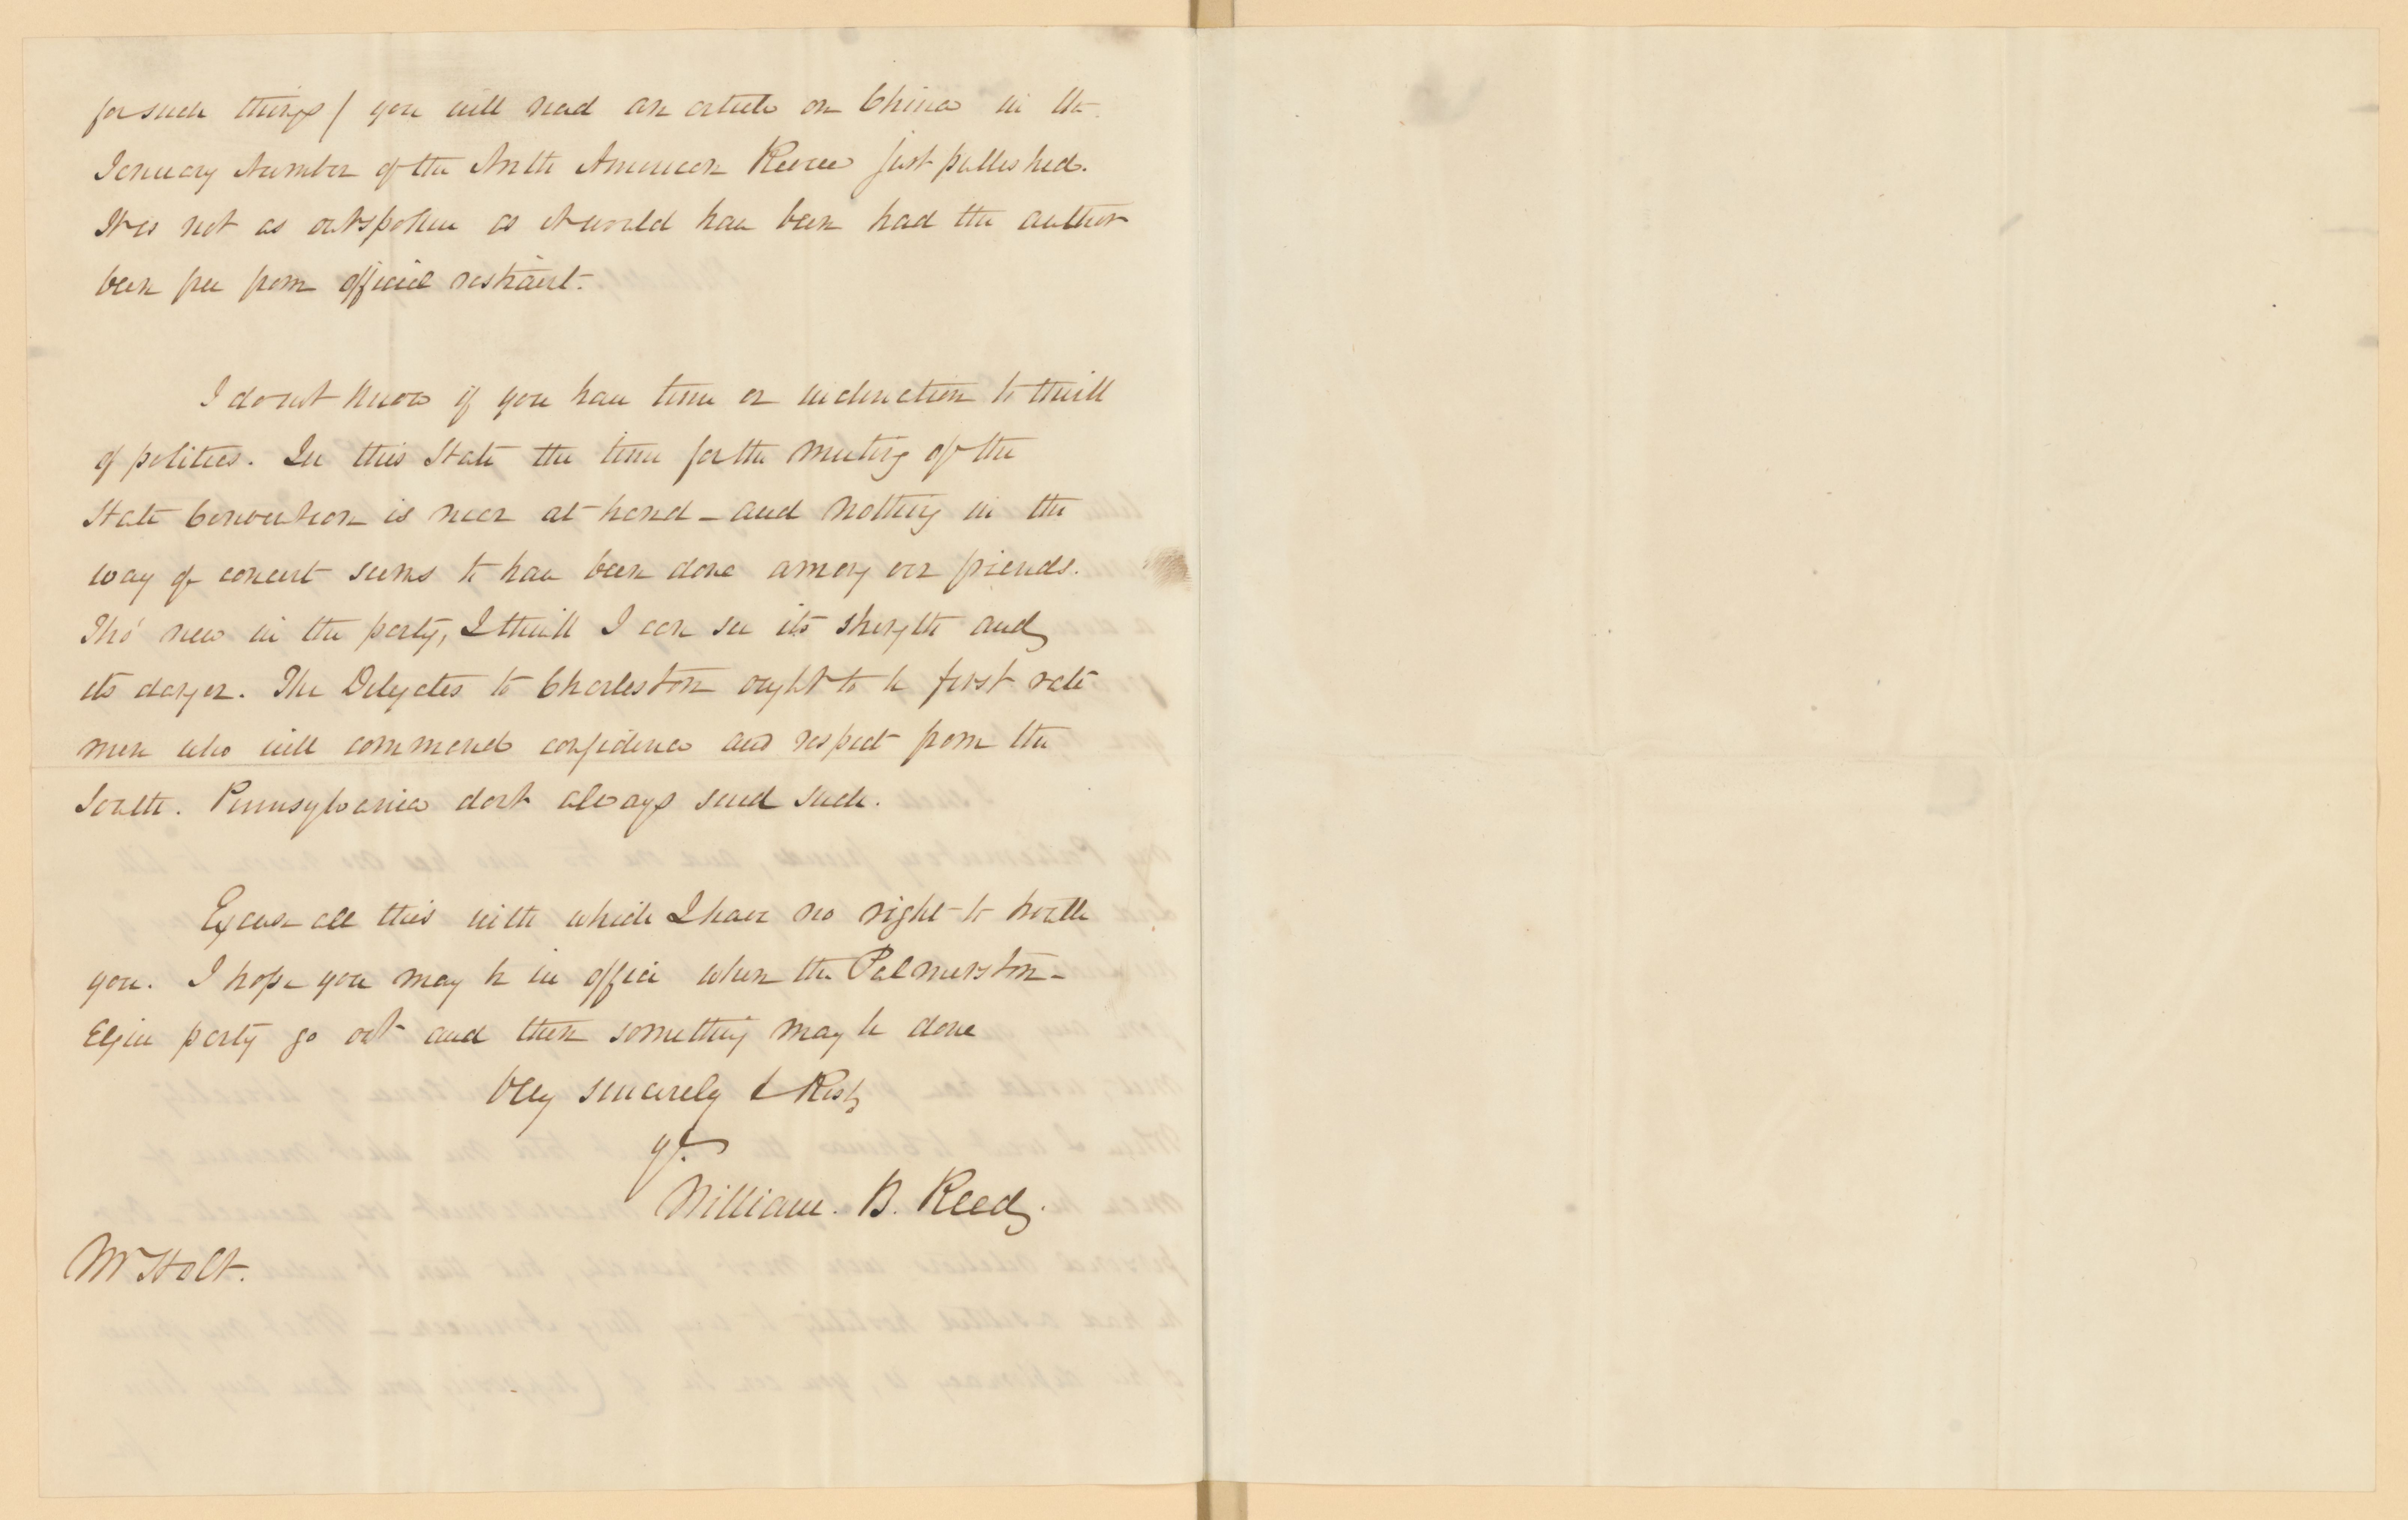 for such things) you will read an article on China in the
January Number of the North American Review just published.
It is not as outspoken as it would have been had the author
been free from official restraint.
I do not know if you have time or inclination to think
of politics. In this State the time for the meeting of the
State Convention is near at hand - and nothing in the
way of concert seems to have been done among our friends.
Tho' new in the party, I think I can see its strength and
its danger. The Delegates to Charleston ought to be first rate
men who will command confidence and respect from the
South. Pennsylvania dont always send such.
Excuse all this with which I have no right to trouble
you. I hope you may be in office when the Palmerston-
Elgin party go out and then something may be done
Very sincerely & Resy
yr.
William. B. Reed.
Mr Holt.